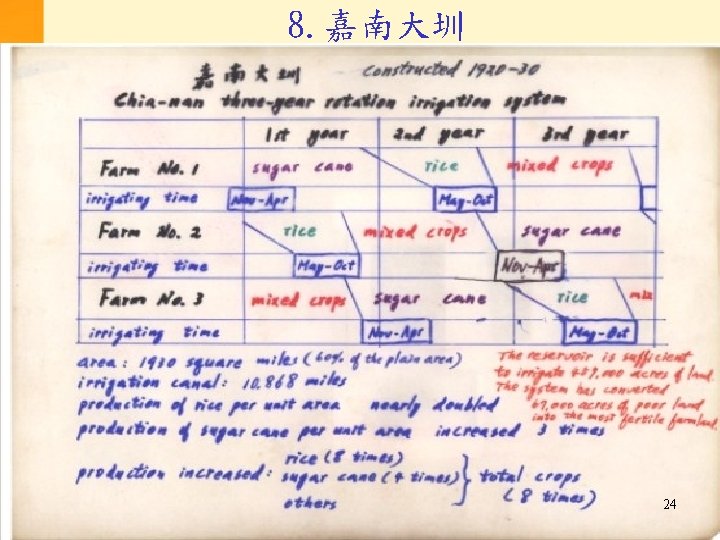 8. 嘉南大圳
嘉南大圳 Constructed 1920-30
Chia-nan three-year rotation irrigation system
1st year 2nd year 3rd year
Farm No. 1 sugar cane rice mixed crops
irrigating time Nov-Apr May-Oct
Farm No. 2 rice mixed crops sugar cane
irrigating time May-Oct Nov-Apr
Farm No. 3 mixed crops sugar cane rice mix
irrigating time Nov-Apr May-Oct
area: 1920 square miles (60% of the plain area)
irrigation canal: 10,868 miles
production of rice per unit area nearly doubled
production of sugar cane per unit area increased 3 times
The reservoir is sufficient
to irrigate 487,000 acres of land.
The system has converted
67,000 acres of poor land
into the most fertile farmland.
production increased: rice (8 times)
sugar cane (4 times)
others
total crops
(8 times)
24